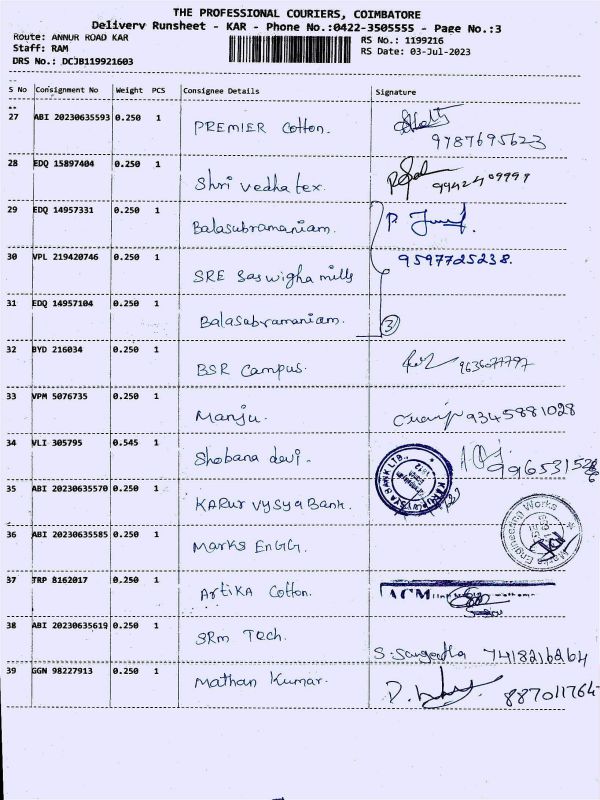 THE PROFESSIONAL COURIERS, COIMBATORE
Delivery Runsheet - KAR - Phone No.:0422-3505555 - Page No.:3
Route: ANNUR ROAD KAR
RS No.: 1199216
Staff: RAM
RS Date: 03-Jul-2023
DRS No.: DCJB119921603
S No Consignment No Weight PCS Consignee Details Signature
27 ABI 20230635593 0.250 1 PREMIER Cotton.
9787695623
28 EDQ 15897404 0.250 1 Shri vedha tex. 9942409999
29 EDQ 14957331 0.250 1 Balasubramaniam.
30 VPL 219420746 0.250 1 SRE Saswigha mills 9597725238.
31 EDQ 14957104 0.250 1 Balasubramaniam. 3
32 BYD 216034 0.250 1 BSR Campus. 9636077797
33 VPM 5076735 0.250 1 Manju. 9345881028
34 VLI 305795 0.545 1 Shobana devi.
KARUR VYSYA BANK LTD.,
35 ABI 20230635570 0.250 1 KARUR VYSYA Bank.
36 ABI 20230635585 0.250 1 Marks EnGG.
Marks Engineering Works
37 TRP 8162017 0.250 1 ArtiKA Cotton. ACM
38 ABI 20230635619 0.250 1 SRM Tech.
S. Sangeetha 7418216264
39 GGN 98227913 0.250 1 Mathan Kumar. 887011764